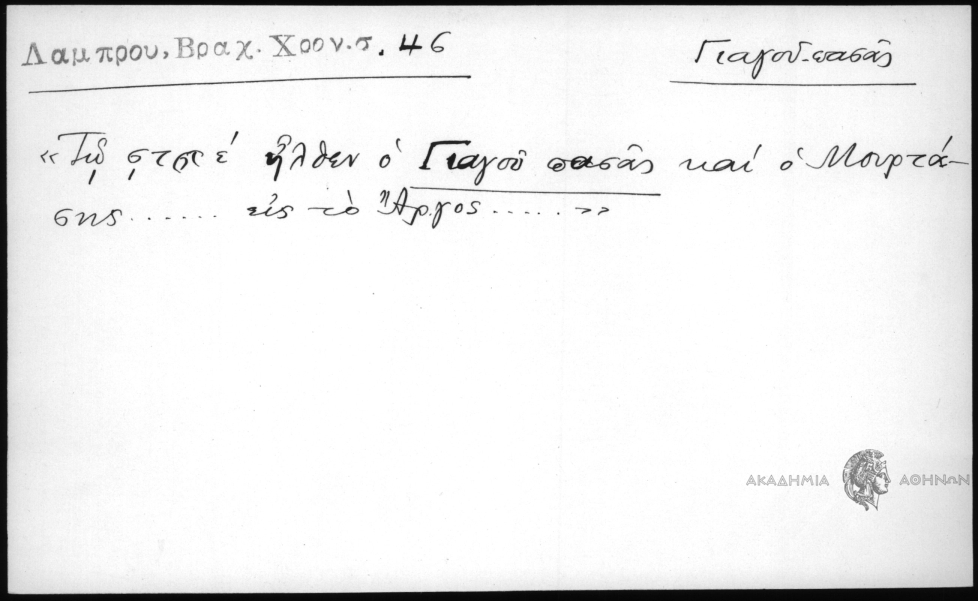 Λαμπρου, Βραχ. Χρον. σ. 46
Γιαγοῦ-πασᾶς
«Τῷ ͵ϛϡϛε΄ ἦλθεν ὁ Γιαγοῦ πασᾶς καί ὁ Μουρτά-
σης ...... εἰς τὸ Ἄργος ..... »
ΑΚΑΔΗΜΙΑ ΑΘΗΝΩΝ